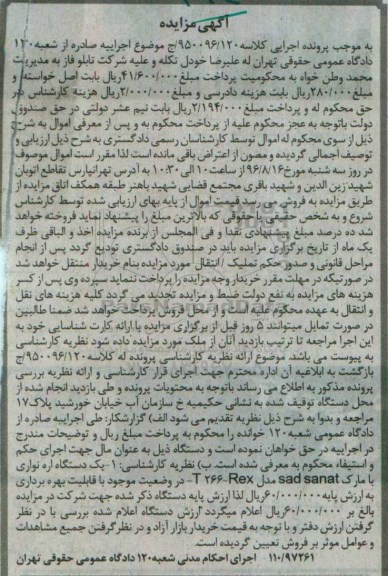 آگهی مزایده
به موجب پرونده اجرایی کلاسه ۹۵۰۰۹۶/۱۲۰/ج موضوع اجراییه صادره از شعبه ۱۲۰
دادگاه عمومی حقوقی تهران له علیرضا خودل نکله و علیه شرکت تابلو فاز به مدیریت
محمد وطن خواه به محکومیت پرداخت مبلغ ۴۱/۶۰۰/۰۰۰ ریال بابت اصل خواسته و
مبلغ ۲۸۰/۰۰۰ ریال بابت هزینه دادرسی و مبلغ ۲/۰۰۰/۰۰۰ ریال هزینه کارشناس در
حق محکوم له و پرداخت مبلغ ۲/۱۹۴/۰۰۰ ریال بابت نیم عشر دولتی در حق صندوق
دولت باتوجه به عجز محکوم علیه از پرداخت محکوم به و پس از معرفی اموال به شرح
ذیل از سوی محکوم له اموال توسط کارشناسان رسمی دادگستری به شرح ذیل ارزیابی و
توصیف اجمالی گردیده و مصون از اعتراض باقی مانده است لذا مقرر است اموال موصوف
در روز سه شنبه مورخ ۹۶/۸/۱۶ از ساعت ۱۰ الی ۱۰:۳۰ به آدرس تهرانپارس تقاطع اتوبان
شهید زین الدین و شهید باقری مجتمع قضایی شهید باهنر طبقه همکف اتاق مزایده از
طریق مزایده به فروش می رسد قیمت اموال از پایه بهای ارزیابی شده توسط کارشناس
شروع و به شخص حقیقی یا حقوقی که بالاترین مبلغ را پیشنهاد نماید فروخته خواهد
شد ده درصد مبلغ پیشنهادی نقدا و فی المجلس از برنده مزایده اخذ و الباقی ظرف
یک ماه از تاریخ برگزاری مزایده باید در صندوق دادگستری تودیع گردد پس از انجام
مراحل قانونی و صدور حکم تملیک / انتقال مورد مزایده بنام خریدار منتقل خواهد شد
در صورتیکه در مهلت مقرر خریدار وجه مزایده را پرداخت ننماید سپرده وی پس از کسر
هزینه های مزایده به نفع دولت ضبط و مزایده تجدید می گردد کلیه هزینه های نقل
و انتقال به عهده محکوم علیه است و از محل فروش پرداخت خواهد شد ضمنا طالبین
در صورت تمایل میتوانند ۵ روز قبل از برگزاری مزایده با ارائه کارت شناسایی خود به
این اجرا مراجعه تا ترتیب بازدید آنان از ملک مورد مزایده داده شود نظریه کارشناسی
به پیوست می باشد موضوع ارائه نظریه کارشناسی پرونده له کلاسه ۹۵۰۰۹۶/۱۲۰/ج
بازگشت به ابلاغیه آن اداره محترم جهت اجرای قرار کارشناسی و ارائه نظریه بررسی
پرونده مذکور به اطلاع می رساند باتوجه به محتویات پرونده و طی بازدید انجام شده از
محل دستگاه توقیف شده به نشانی حکیمیه خ سازمان آب خیابان خورشید پلاک ۱۷
مراجعه و بدوا به شرح ذیل نظریه تقدیم می شود الف) گزارشکار: طی اجراییه صادره از
دادگاه عمومی شعبه ۱۲۰ خوانده را محکوم به پرداخت مبلغ ریال و توضیحات مندرج
در اجراییه در حق خواهان نموده است و دستگاه ذیل به عنوان مال جهت اجرای حکم
و استیفاء محکوم به معرفی شده است. ب) نظریه کارشناسی: ۱- یک دستگاه اره نواری
با مارک sad sanat مدل T ۲۶۶-Rex- در وضعیت موجود با قابلیت بهره برداری
به ارزش پایه ۶۰/۰۰۰/۰۰۰ ریال لذا ارزش پایه دستگاه ذکر شده جهت شرکت در مزایده
بالغ بر ۶۰/۰۰۰/۰۰۰ ریال اعلام میگردد ارزش دستگاه اعلام شده بررسی با در نظر
گرفتن ارزش دفتر و با توجه به قیمت خریدار بازار آزاد و در نظر گرفتن جمیع مشاهدات
و عوامل موثر بر فروش تعیین گردیده است.
۱۱۰/۹۷۳۶۱ اجرای احکام مدنی شعبه ۱۲۰ دادگاه عمومی حقوقی تهران